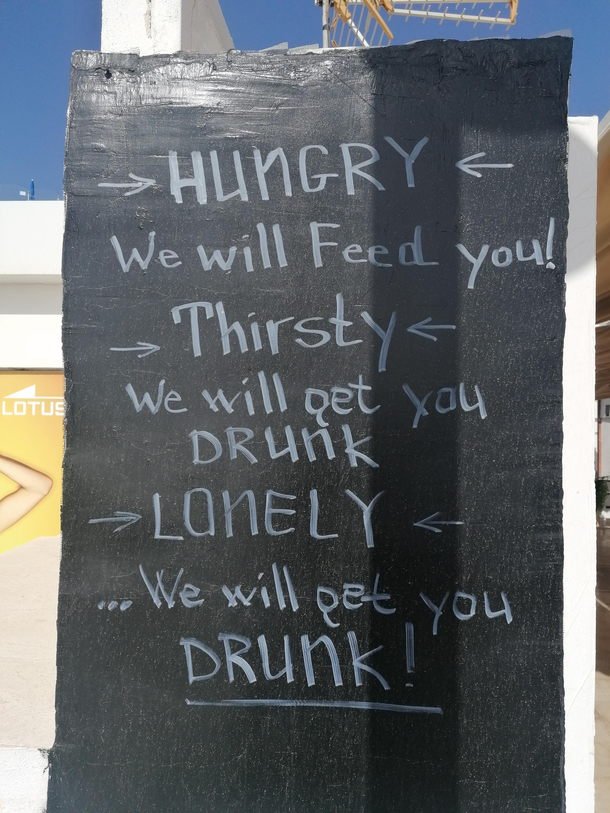 → HUNGRY ←
We will Feed you!
→ Thirsty ←
We will get you
DRUNK
→ LONELY ←
...We will get you
DRUNK!
LOTUS